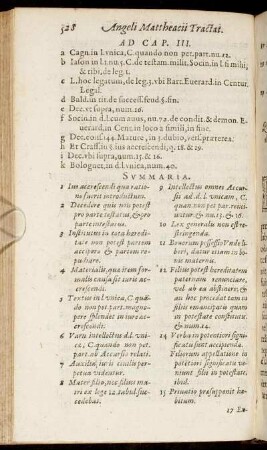 528 Angeli Mattheacii Tractat.
AD CAP. III.
a Cagn. in l. vnica, C. quando non pet. part. nu. 12.
b Iason in l. 1. nu. 5. C. de testam. milit. Socin. in l. si mili,
& tibi, de leg. 1.
c L. hoc legatum, de leg. 3. vbi Bart. Euerard. in Centur.
Legal.
d Bald. in tit. de success. feud. §. fin.
e Dec. vt supra, num. 16.
f Socin. in d. l. cum auus, nu. 72. de condit. & demon. E-
uerard. in Cent. in loco a simili, in fine.
g Dec. cons. 44. Mature, in 3. dubio, vers. præterea.
h Et Crass. in §. ius accrescendi, q. 18. & 19.
i Dec. vbi supra, num. 15. & 16.
k Bologuet. in d. l. vnica, num. 40.
SVMMARIA.
1 Ius accrescendi qua ratio-
ne fuerit introductum.
2 Decedere quis non potest
pro parte testatus, & pro
parte intestatus.
3 Institutus in tota heredi-
tate non potest partem
accipere & partem re-
pudiare.
4 Materialis quæ item for-
malis causa sit iuris ac-
crescendi.
5 Textus in l. vnica, C. quã-
do non pet. par. magnope-
re splendet in iure ac-
crescendi.
6 Varii intellectus d. l. vni-
cæ, C. quando non pet.
part. ab Accursio relati.
7 Auxilia, iuris ciuilis per-
petua videntur.
8 Mater filio, nec filius ma-
tri ex lege 12. tabul. suc-
cedebat.
9 Intellectus omnes Accur-
sii ad d. l. vnicam, C.
quan. non pet. par. reiici-
untur, & nu. 13. & 16.
10 Lex generalis non est re-
stringenda.
11 Bonorum possessio Vnde li-
beri, datur etiam in bo-
nis maternis.
12 Filius potest hereditatem
paternam renunciare,
vel ea abstinere; an
ibidem quod si emanci-
pati quam filii
in potestate constituti,
& num. 14.
14 Verba in potentiori signi-
ficatu sunt accipienda.
Filiorum appellatione in
potentiori significatione
filii in potestate,
ibid.
15 Priuatio præsupponit ha-
bitum.
17 Ex-